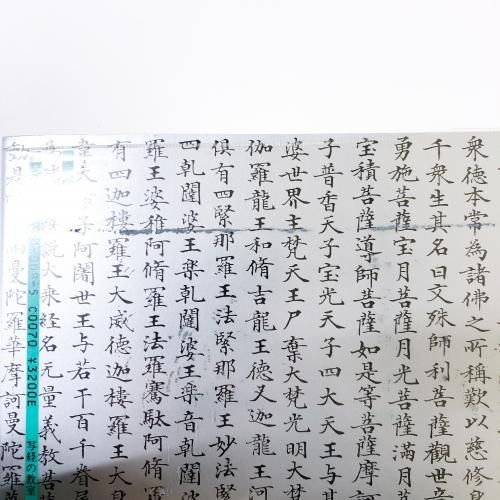 衆德本常為諸佛之所稱歎以慈修身
千衆生其名曰文殊師利菩薩觀世音
勇施菩薩宝月菩薩月光菩薩滿月
宝積菩薩導師菩薩如是等菩薩摩訶
子普香天子宝光天子四大天王与其
婆世界主梵天王尸棄大梵光明大梵
伽羅龍王和脩吉龍王德叉迦龍王
俱有四緊那羅王法緊那羅王妙法緊
四乹闥婆王樂乹闥婆王樂音乹闥
羅王婆稚阿脩羅王法羅騫駄阿脩
有四迦樓羅王大威德迦樓羅王大
韋天子阿闍世王与若干百千眷属
說大乘經名无量義教菩
曼陀羅華摩訶曼陀羅
C0070 ¥3200E
写経の教室